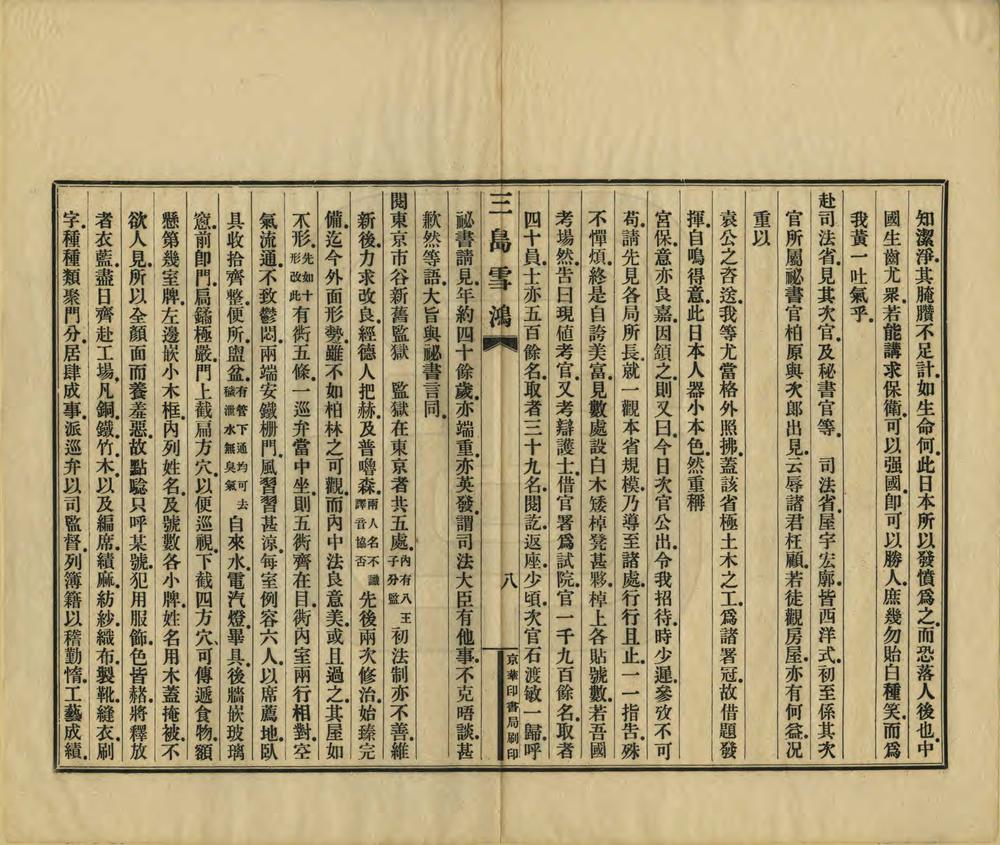 知潔淨其腌臢不足計如生命何此日本所以發憤爲之而恐落人後也中
國生齒尤衆若能講求保衛可以强國卽可以勝人庶幾勿貽白種笑而爲
我黃一吐氣乎
赴司法省見其次官及秘書官等　司法省屋宇宏廓皆西洋式初至係其次
官所屬祕書官柏原與次郞出見云辱諸君枉顧若徒觀房屋亦有何益况
重以
袁公之咨送我等尤當格外照拂蓋該省極土木之工爲諸署冠故借題發
揮自鳴得意此日本人器小本色然重稱
宮保意亦良嘉因頷之則又曰今日次官公出令我招待時少遲參攷不可
苟請先見各局所長就一觀本省規模乃導至諸處行行且止一一指告殊
不憚煩終是自誇美富見數處設白木矮棹凳甚夥棹上各貼號數若吾國
考場然告曰現值考官又考辯護士借官署爲試院官一千九百餘名取者
四十員士亦五百餘名取者三十九名閱訖返座少頃次官石渡敏一歸呼
三島雪鴻
八
京華印書局刷印
祕書請見年約四十餘歲亦端重亦英發謂司法大臣有他事不克晤談甚
歉然等語大旨與祕書言同
閱東京市谷新舊監獄　監獄在東京者共五處內有八王子分監初法制亦不善維
新後力求改良經德人把赫及普嚕森兩人名不識譯音協否先後兩次修治始臻完
備迄今外面形勢雖不如柏林之可觀而內中法良意美或且過之其屋如
不形先如十形改此有衖五條一巡弁當中坐則五衖齊在目衖內室兩行相對空
氣流通不致鬱悶兩端安鐵柵門風習習甚涼每室例容六人以席薦地臥
具收拾齊整便所盥盆有管下通均可去穢泄水無臭氣自來水電汽燈畢具後牆嵌玻璃
窻前卽門扃鐍極嚴門上截扃方穴以便巡視下截四方穴可傳遞食物額
懸第幾室牌左邊嵌小木框內列姓名及號數各小牌姓名用木蓋掩被不
欲人見所以全顏面而養羞惡故點騐只呼某號犯用服飾色皆赭將釋放
者衣藍盡日齊赴工場凡銅鐵竹木以及編席績麻紡紗織布製靴縫衣刷
字種種類聚門分居肆成事派巡弁以司監督列簿籍以稽勤惰工藝成績